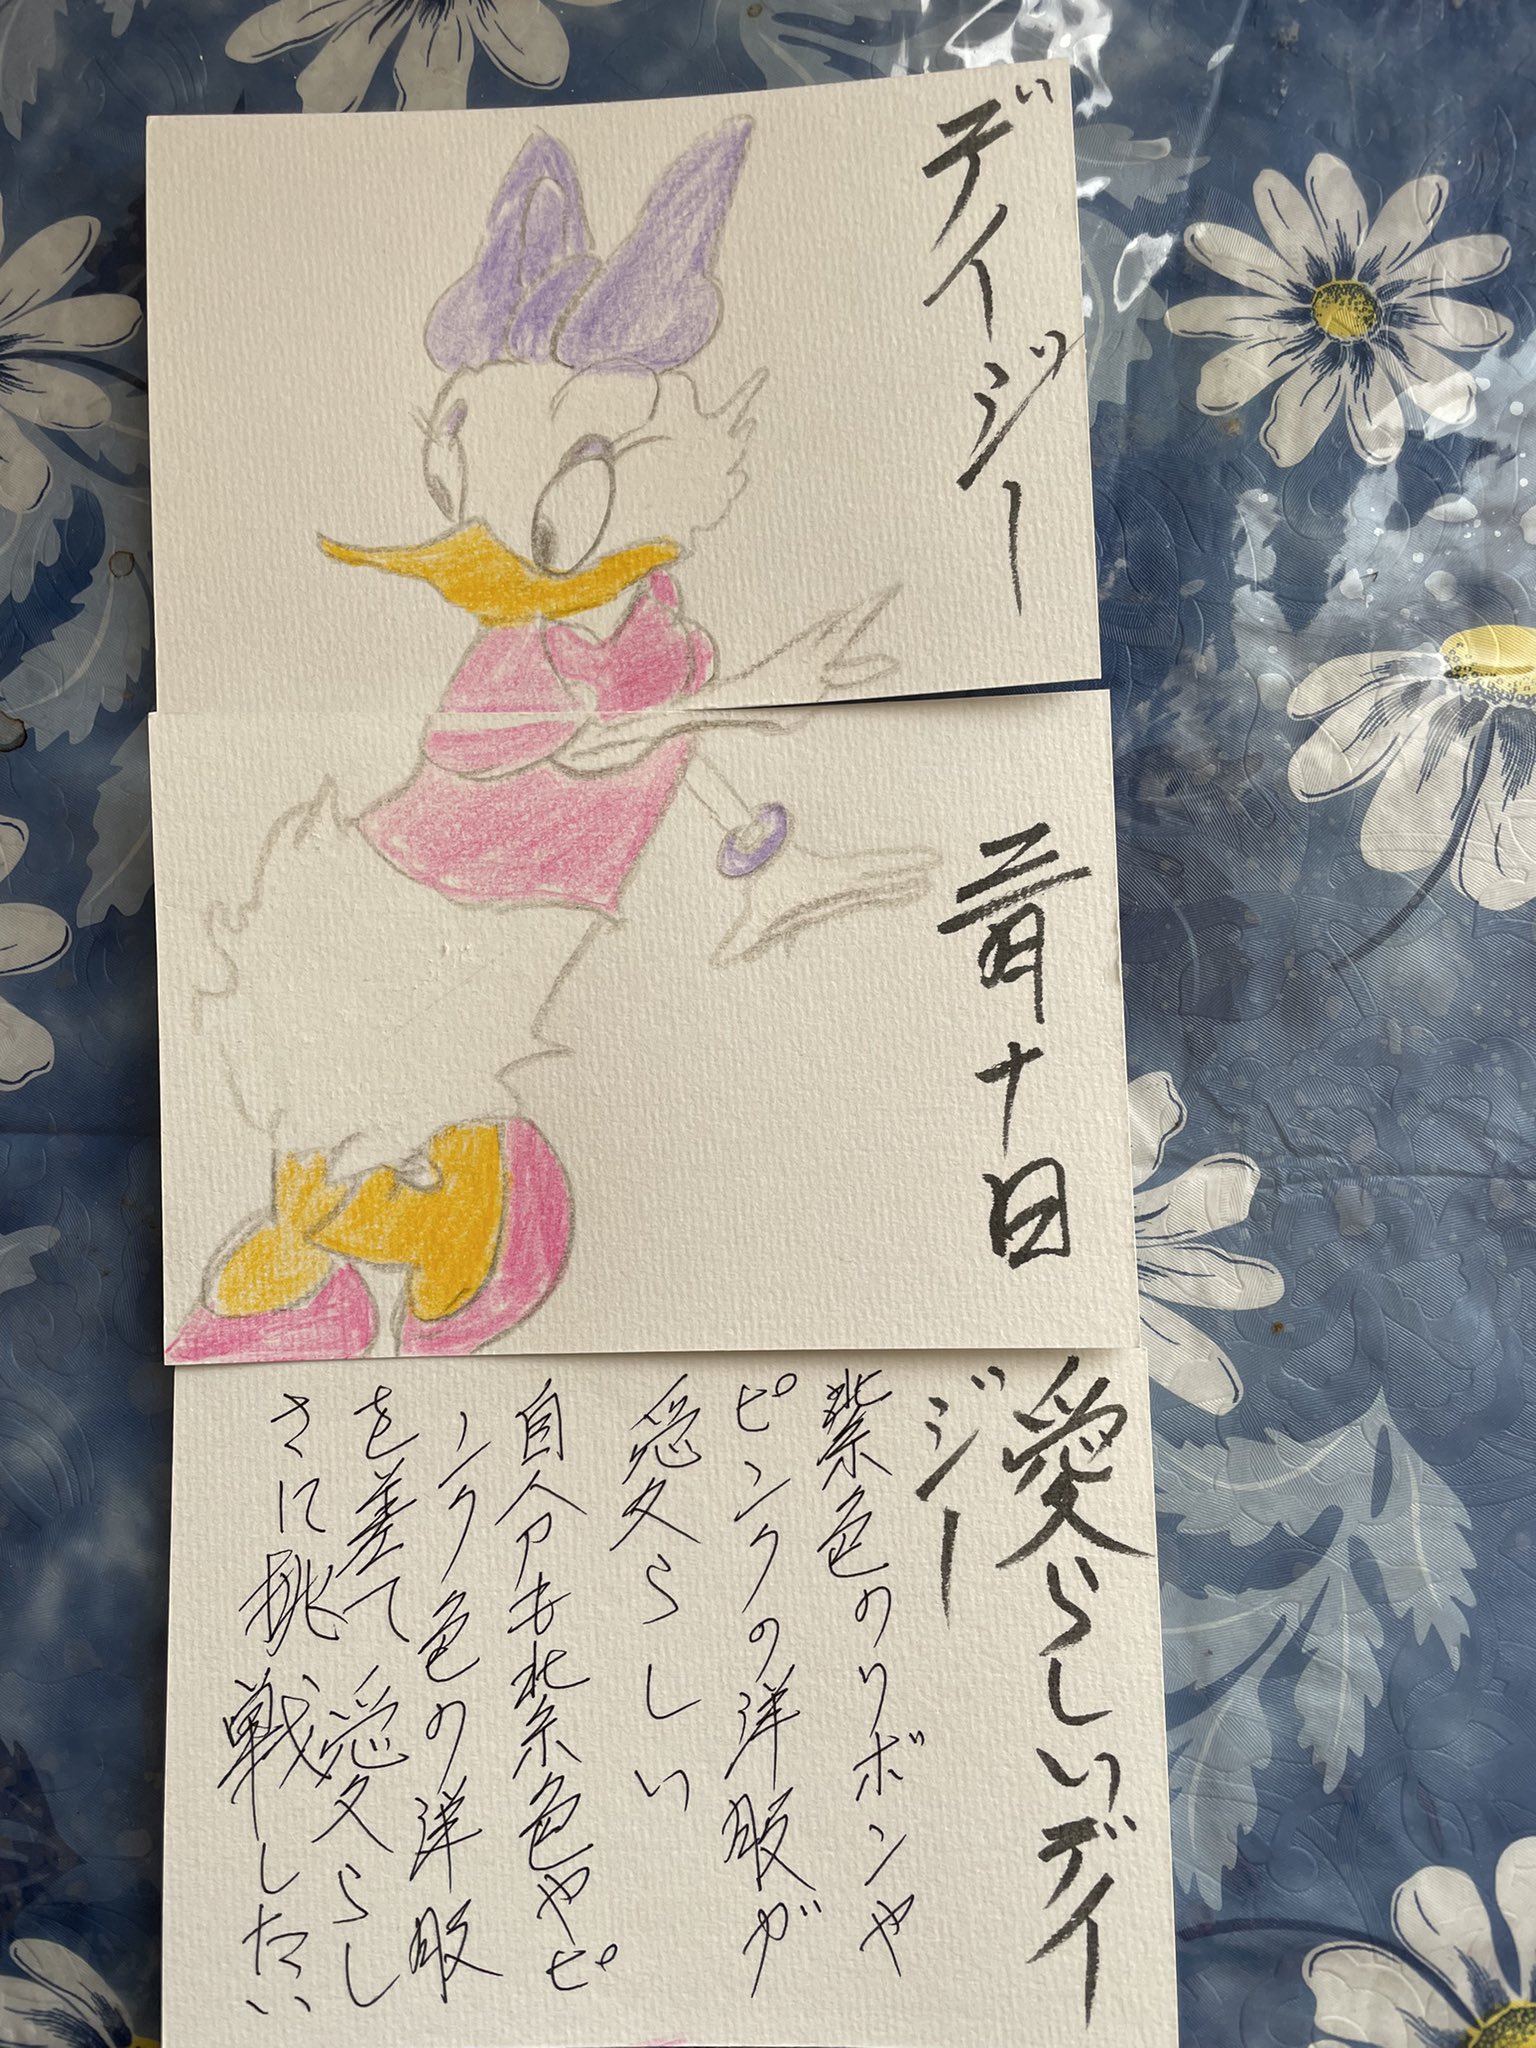 デイジー
三月十日
愛らしいデイ
ジー
紫色のリボンや
ピンクの洋服が
愛らしい
自分も紫色やピ
ンク色の洋服
を着て愛らし
さに挑戦したい